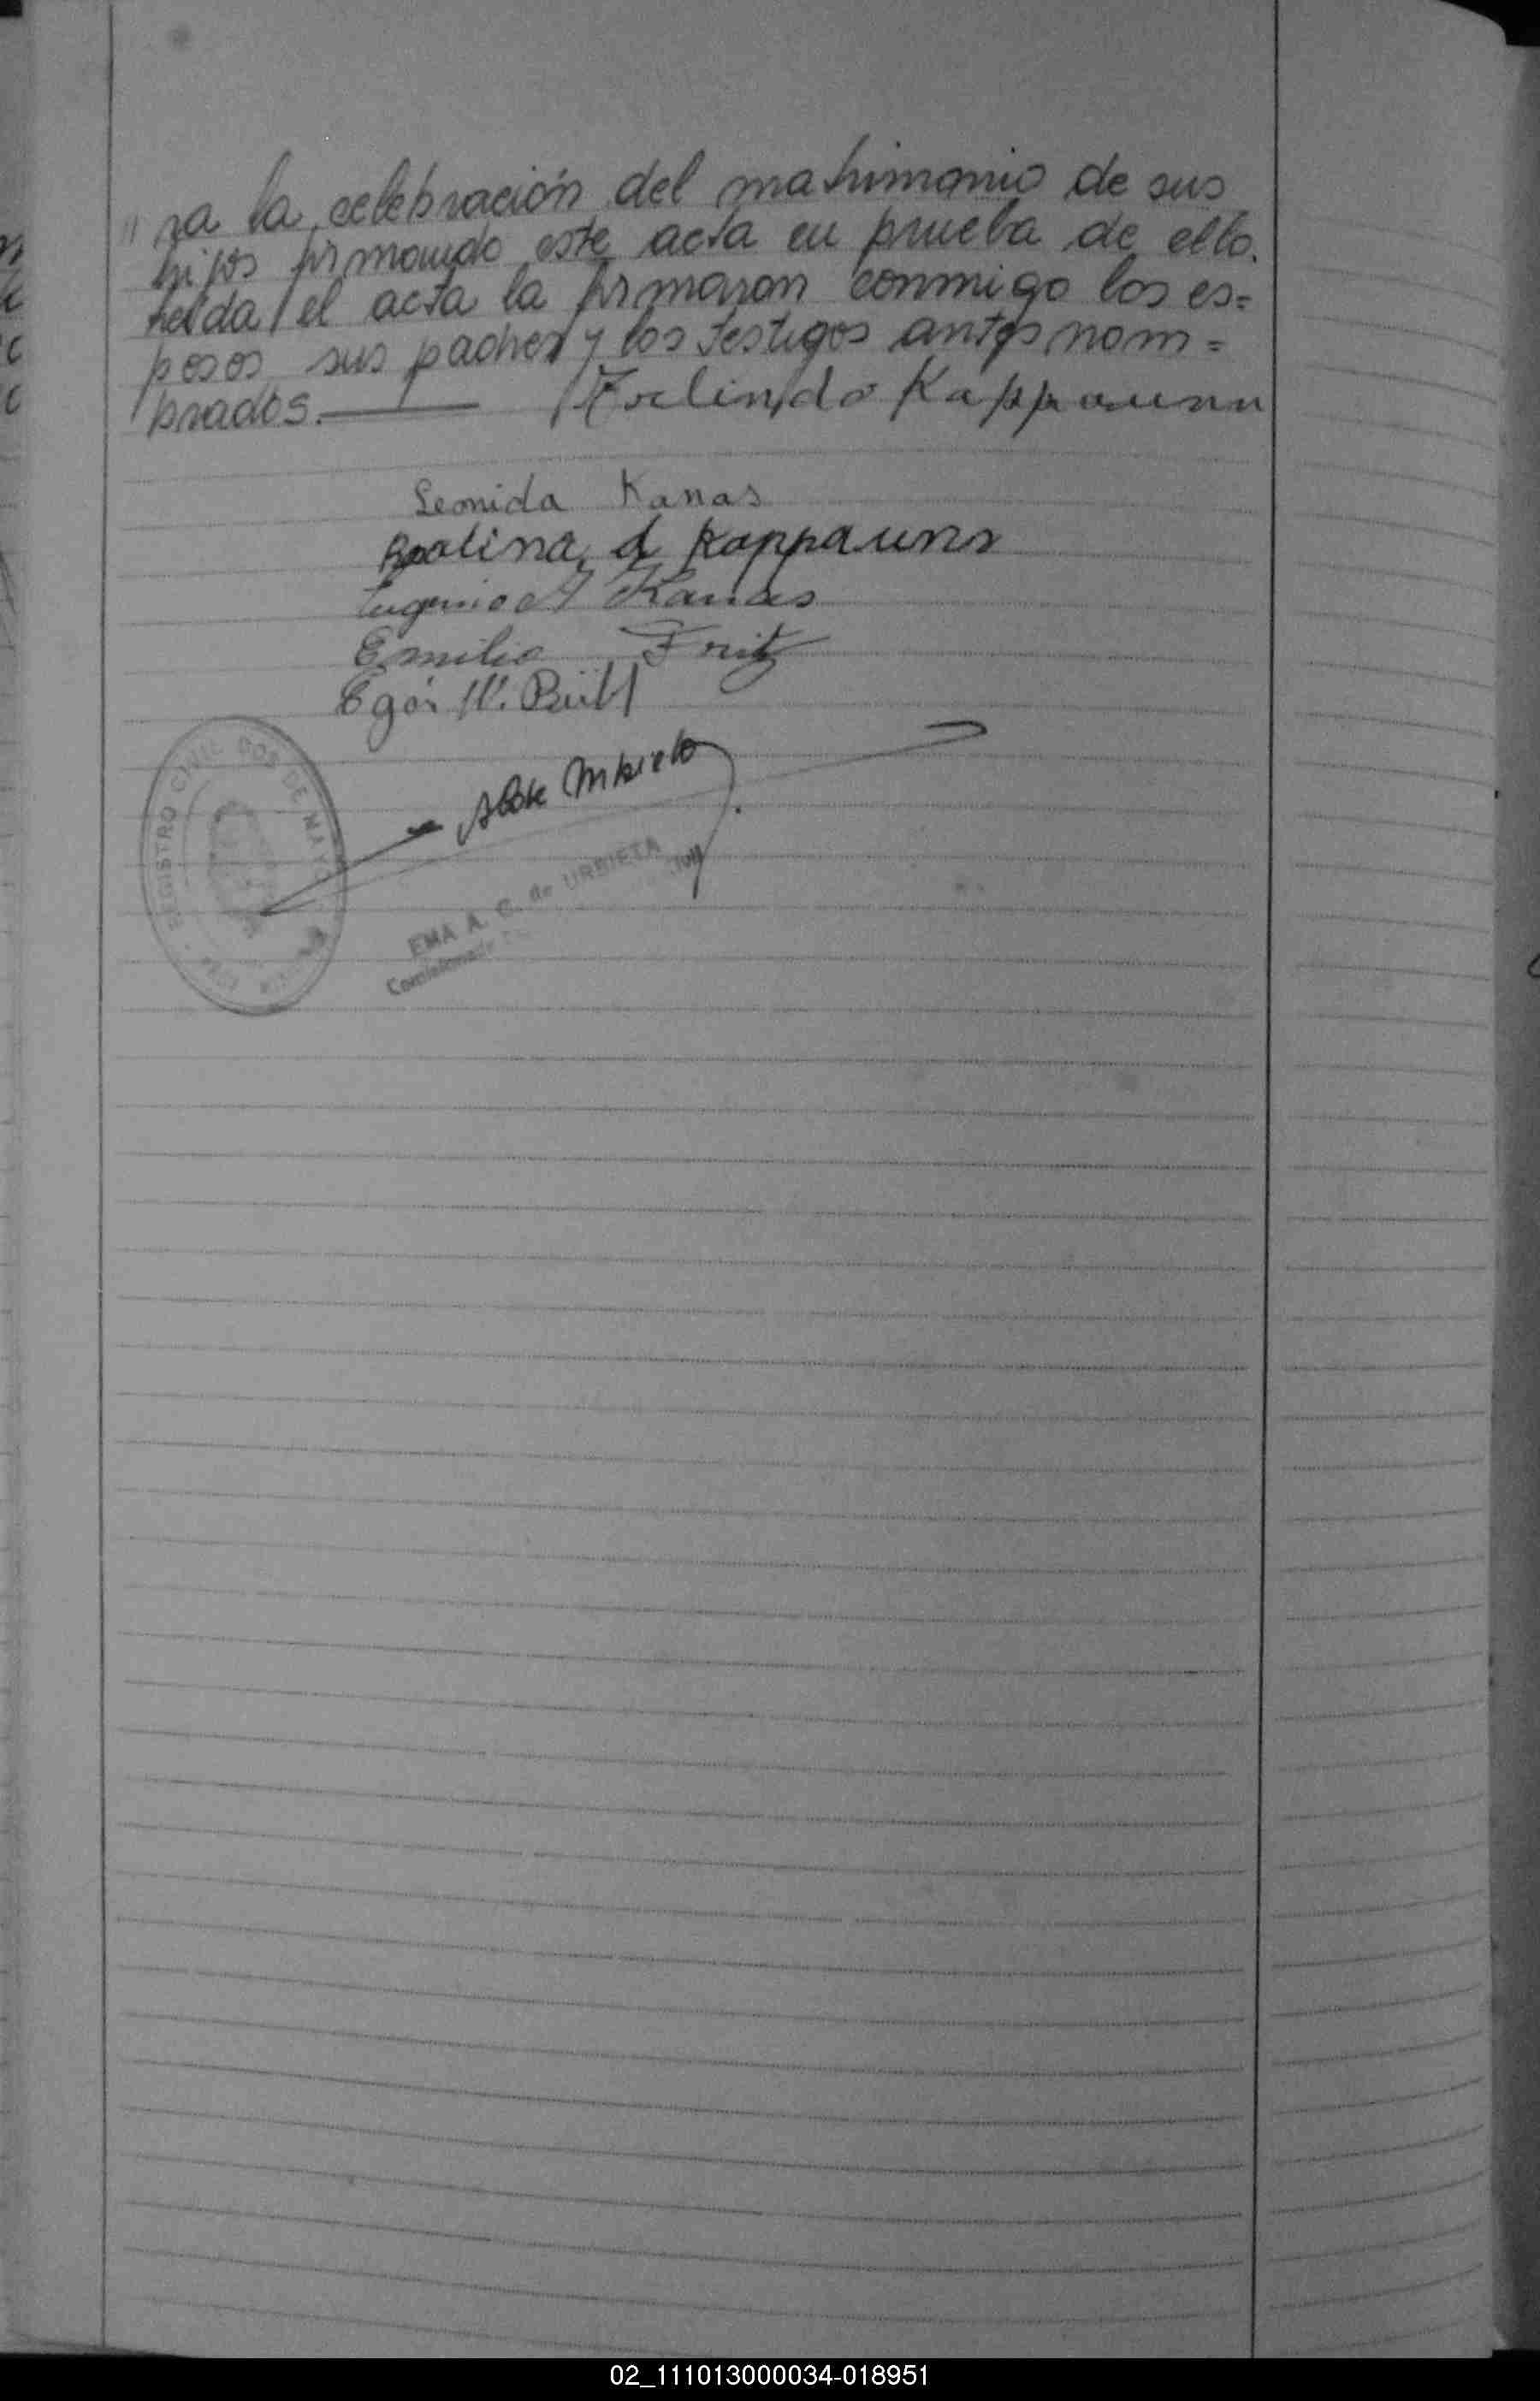 " ra la celebración del matrimonio de sus
hijos firmando este acta en prueba de ello.
Leida el acta la firmaron conmigo los es=
posos sus padres y los testigos antes nom=
brados.
Arlindo Kappaunn
Leonida Kanas
d Kappaunn
Eugenio A Kanas
Emilio Fritz
REGISTRO CIVIL DOS DE MAYO
EMA A. G. de URBIETA
02_111013000034-018951